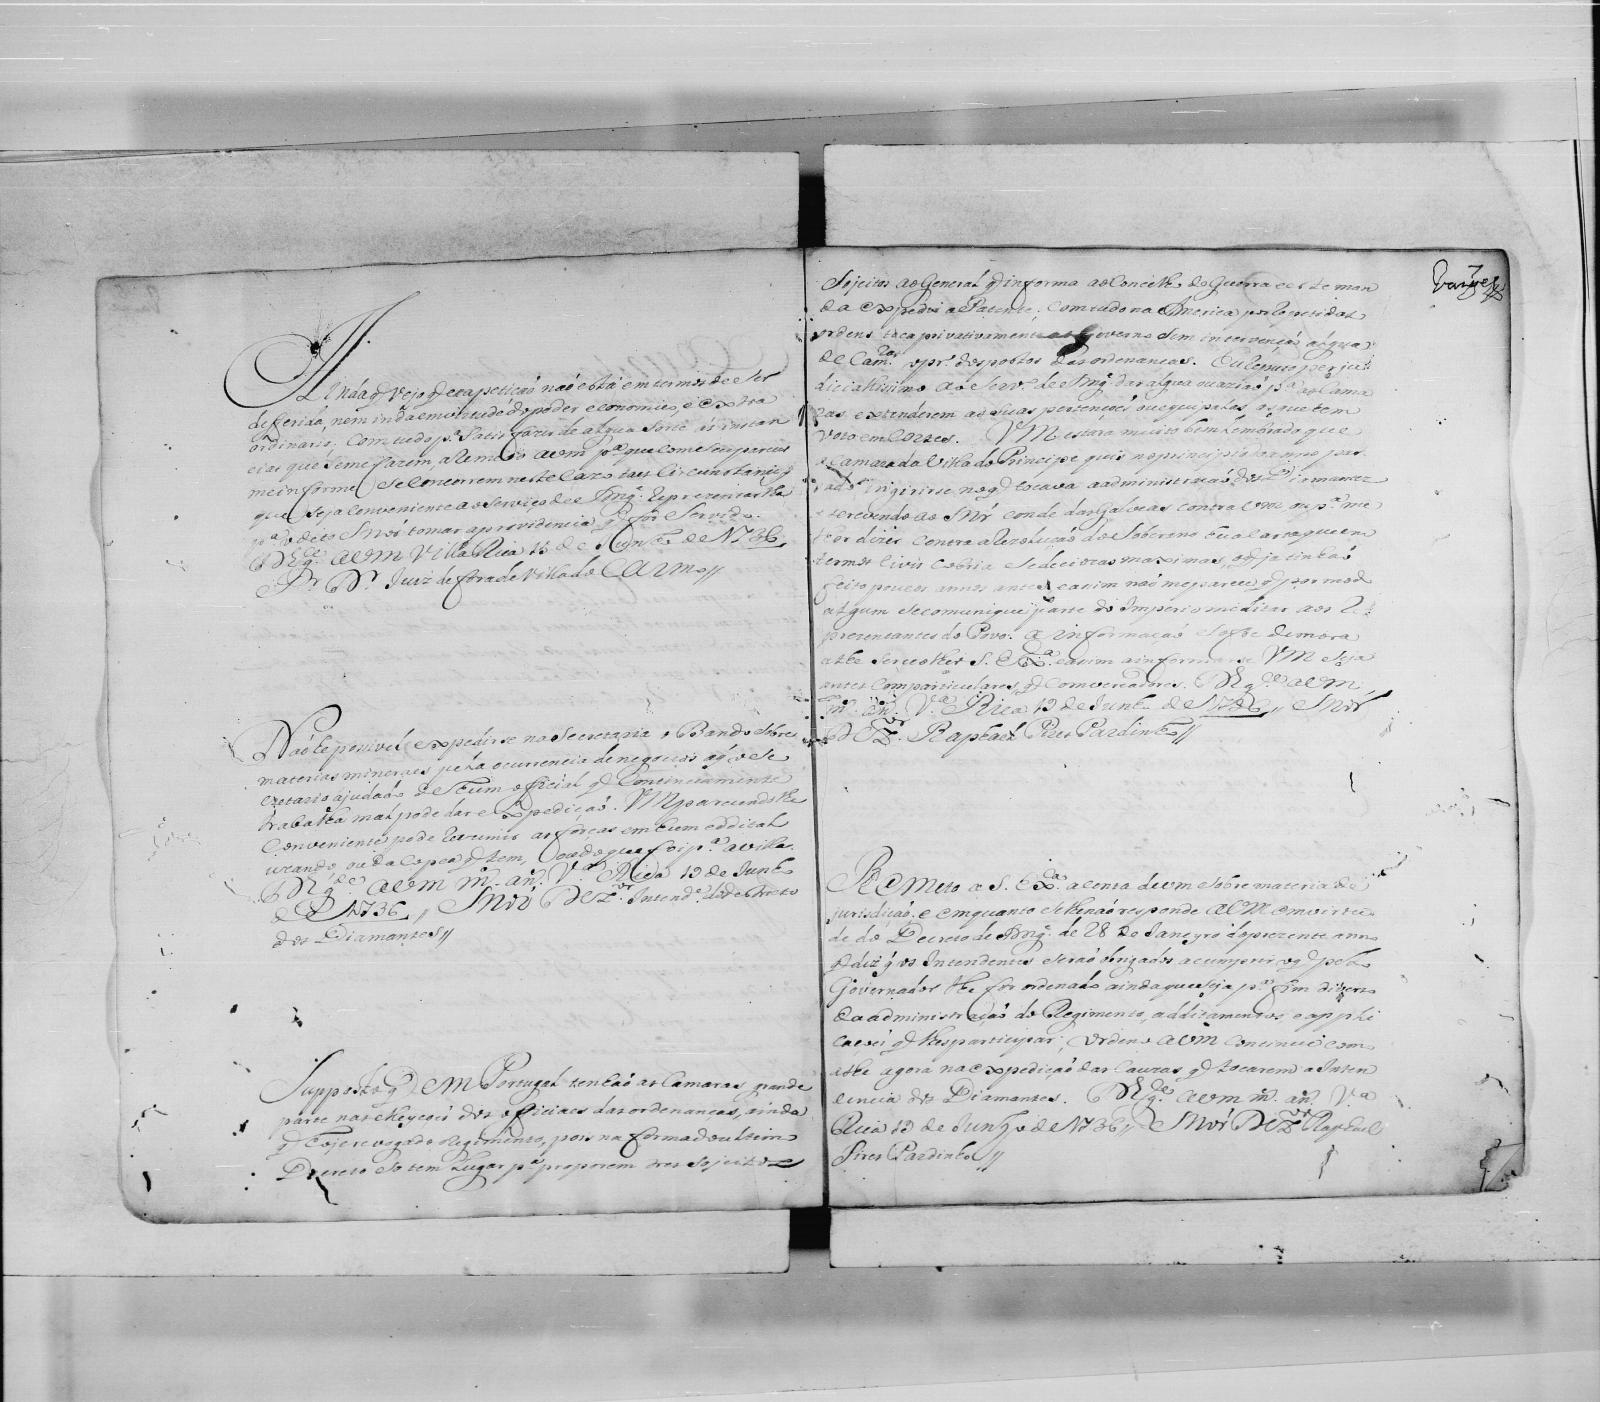 Ainda q̃ vejo q̃ esta petiçaõ naõ está em termos de ser
deferida, nem inda em virtude do poder economico, e extra
ordinario. Com tudo p.ª satisfazer de algua sorte às instan
cias que se me fazem, a remeto a vm p.ª que com seu parecer
me informe se concorrem neste cazo taes circunstancias
que seja conveniente ao serviço de S. Mg.e reprezentarlhe
p.ª o dito Snõr tomar a providencia q̃ for servido.
D.s g.e a vm Villa Rica 15 de Junho de 1736
Sr. Dr. Juiz de fora de Villa do Carmo//
Naõ he possivel expedirse na secretaria o Bando sobre
materias mineraes pella ocurrencia de negocios a q̃ o Se
cretario ajudado de hum official q̃ continuamente
trabalha mal pode dar expediçaõ. VM parecendo lhe
conveniente pode rezumir as forças em hum edital
uzando da copea q̃ tem, do que foi p.ª a villa.
D.s g.de a vm m.s an.s V.ª Rica 19 de Junho
de 1736// Snõr Dez.or Intend.e
dos Diamantes//
Supposto q̃ em Portugal tenhaõ as Camaras grande
parte nas eleyçoés dos officiaes das ordenanças, ainda
q̃ hoje revogado o regimento, pois na forma do ultimo
Decreto só tem lugar p.ª proporem tres sojeitos
Sojeitos ao General q̃ informa ao Concelho de Guerra e este man
da expedir a Patente; com tudo na America por repetidas
ordens toca privativamente ao Governo sem intervençaõ algua
de Cam.ras o pr. dos postos das ordenanças. Eu tenho por ju
dicialissimo ao serv.o de S. Mg.e dar algua ouazião p.ª as Cama
ras extenderem as suas pertençoés ou equipalas, às que tem
voto em Cortes. VM estará muito bem lembrado que
a Camara da Villa do Principe quis no principio do anno pas
sado ingirirse no q̃ tocava a administraçaõ dos Diamantes
escrevendo ao Snõr Conde das Galveas contra
dizer contra a Rezoluçaõ do Soberano hua carta que em
termos civis cobria sediciozas maximas, o q̃ ja tinhaõ
feito poucos annos antes e assim naõ me parece q̃ por modo
algum se comunique parte do Imperio militar aos Re
prezentantes do Povo. A informaçaõ sofre demora
athe se recolher S. Ex.ª e assim a informarse VM seja
antes com particulares, q̃ com vereadores. D.s g.e a vm
m.s an.s V.ª Rica 19 de Junho de 1736// Snõr
Dez.or Raphael Pires Pardinho//
Remeto a S. Ex.ª a conta de vm sobre materia de
jurisdiçaõ, e emquanto se lhe naõ responde a VM em virtu
de do Decreto de S. Mg.e de 28 de Janeyro do prezente anno
q̃ diz q̃ os Intendentes seraõ obrigados a cumprir o q̃ pelo
Governador lhe for ordenado ainda que seja p.ª fim diverso
da administraçaõ do Regimento, additamentos e applica
coés q̃ lhes participar; ordeno a vm continue como
athe agora na expediçaõ das cauzas q̃ tocarem a Inten
dencia dos Diamantes. D.s g.de a vm m.s an.s V.ª
Rica 19 de Junho de 1736// Snõr Dez.or Raphael
Pires Pardinho//